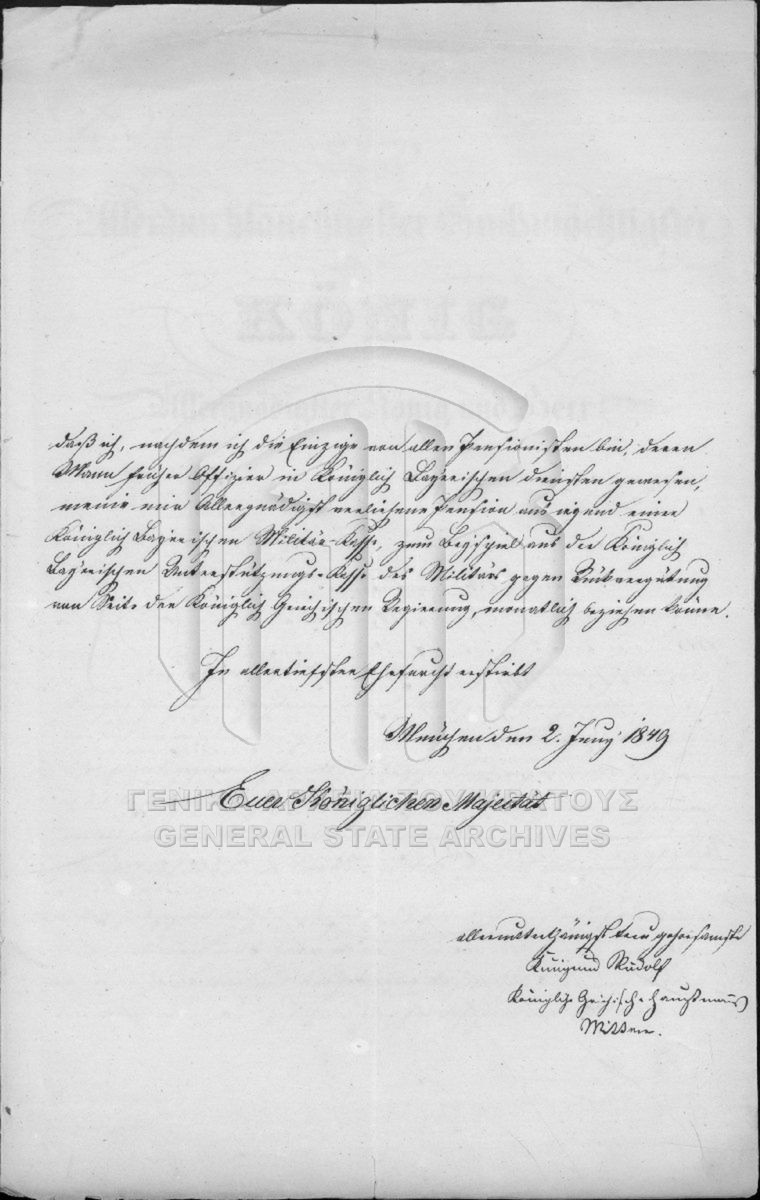 daß ich, nachdem ich die Einzige von allen Pensionisten bin, deren
Mann früher Offizier in Königlich Bayerischen Diensten gewesen,
meine mir Allergnädigst verliehene Pension aus irgend einer
Königlich Bayerischen Militär-Kasse, zum Beyspiel aus der Königlich
Bayerischen Unterstützungs-Kasse des Militärs gegen Rückvergütung
von Seite der Königlich Griechischen Regierung, monatlich beziehen könne.
In allertiefster Ehrfurcht erstirbt
München den 2. Juny 1849
Euer Königlichen Majestät
ΓΕΝΙΚΑ ΑΡΧΕΙΑ ΤΟΥ ΚΡΑΤΟΥΣ
GENERAL STATE ARCHIVES
allerunterthänigst treu gehorsamste
Rudolf
Königlich Griechische Hauptmanns
Wittwe.